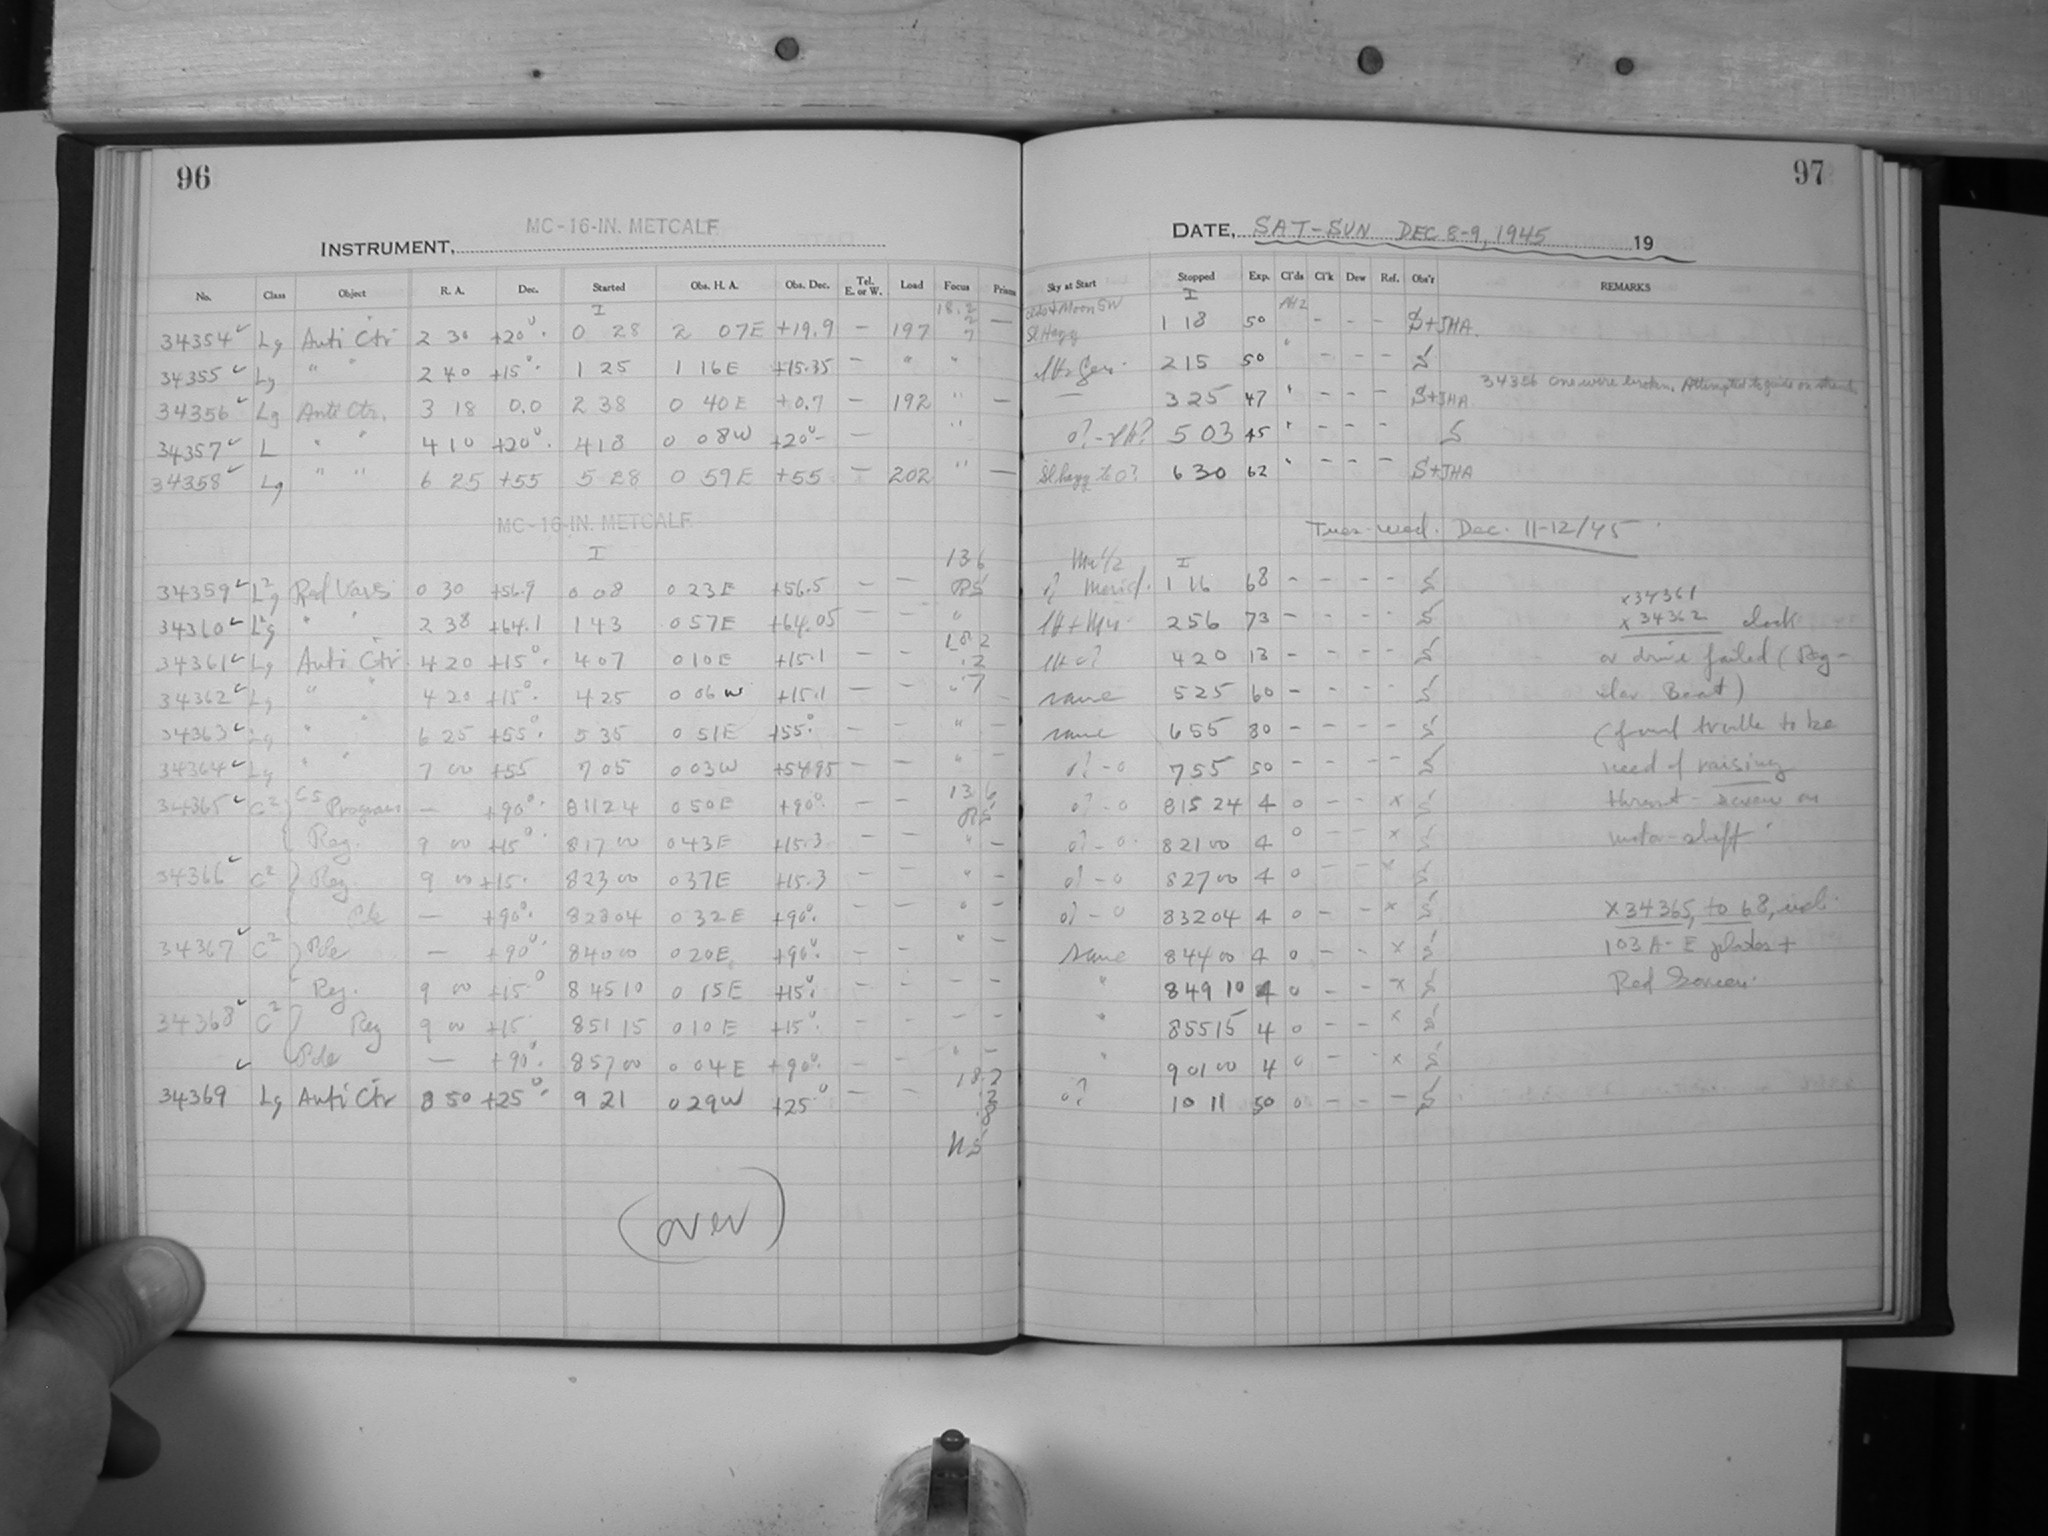 96
97
MC-16-IN. METCALF
INSTRUMENT,
DATE, SAT-SUN DEC 8-9, 1945 19
No. Class Object R. A. Dec. Started Obs. H. A. Obs. Dec. Tel. E. or W. Load Focus Prism Sky at Start Stopped Exp. Cl'ds Cl'k Dew Ref. Obs'r REMARKS
I 18.2 Moon SW I
34354 ✓ Lg Anti Ctr 2 30 +20°. 0 28 2 07E +19.9 - 197 2 7 - Sl Hazy 1 18 50 - - - S+JHA
34355 ✓ Lg " " 2 40 +15°. 1 25 1 16E +15.35 - " " 2 15 50 ' - - - S
34356 ✓ Lg Anti Ctr. 3 18 0.0 2 38 0 40E +0.7 - 192 " - — 3 25 47 ' - - - S+JHA 34356 one wire broken. Attempted to guide on
34357 ✓ L " " 4 10 +20°. 4 18 0 08W +20° - " 0?- 5 03 45 ' - - - S
34358 ✓ Lg " " 6 25 +55 5 28 0 59E +55 - 202 " - Sl hazy to 0? 6 30 62 ' - - - S+JHA
MC-16-IN. METCALF
Tues-Wed. Dec. 11-12/45
I 13.6 I
34359 ✓ L²g Red Vars 0 30 +56.9 0 08 0 23E +56.5 - - RS 0? Merid. 1 16 68 - - - - S
x34361
34360 ✓ L²g " " 2 38 +64.1 1 43 0 57E +64.05 - - " 2 56 73 - - - - S x34362 clock
34361 ✓ Lg Anti Ctr. 4 20 +15°. 4 07 0 10E +15.1 - - 18.2 .2 4 20 13 - - - - S or drive failed (Reg-
34362 ✓ Lg " " 4 20 +15°. 4 25 0 06W +15.1 - - .7 same 5 25 60 - - - - S ular Beat)
34363 ✓ Lg " " 6 25 +55°. 5 35 0 51E +55° - - " - same 6 55 80 - - - - S (found trouble to be
34364 ✓ Lg " " 7 00 +55 7 05 0 03W +54.95 - - " - 0?-0 7 55 50 - - - - S need of raising
34365 ✓ C² CS Program — +90°. 8 11 24 0 50E +90°. - - 13.6 RS 0?-0 8 15 24 4 0 - - x S thrust-screw on
Reg. 9 00 +15°. 8 17 00 0 43E +15.3 - - " - 0?-0. 8 21 00 4 0 - - x S motor-shaft
34366 ✓ C² Reg. 9 00 +15. 8 23 00 0 37E +15.3 - - " - 0?-0 8 27 00 4 0 - - x S
Pole — +90°. 8 28 04 0 32E +90°. - - " - 0?-0 8 32 04 4 0 - - x S x34365, to 68, incl.
34367 ✓ C² Pole — +90°. 8 40 00 0 20E +90° - - " - Same 8 44 00 4 0 - - x S 103A-E plates +
Reg. 9 00 +15° 8 45 10 0 15E +15° - - - - " 8 49 10 4 0 - - x S Red Screen.
34368 ✓ C² Reg 9 00 +15 8 51 15 0 10E +15°. - - - - " 8 55 15 4 0 - - x S
Pole — +90°. 8 57 00 0 04E +90°. - - " - " 9 01 00 4 0 - - x S
34369 ✓ Lg Anti Ctr 8 50 +25°. 9 21 0 29W +25° - - 18.2 .2 .8 0? 10 11 50 0 - - - S
NS
(over)